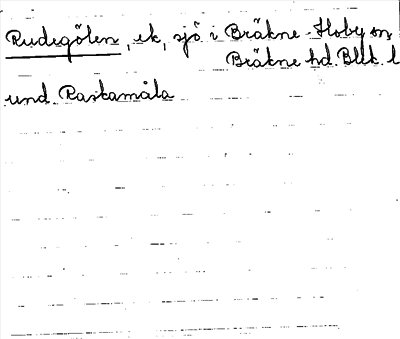 Rudegölen, ek, sjö i Bräkne-Hoby sn
Bräkne hd. Blek. l
und. Raskamåla